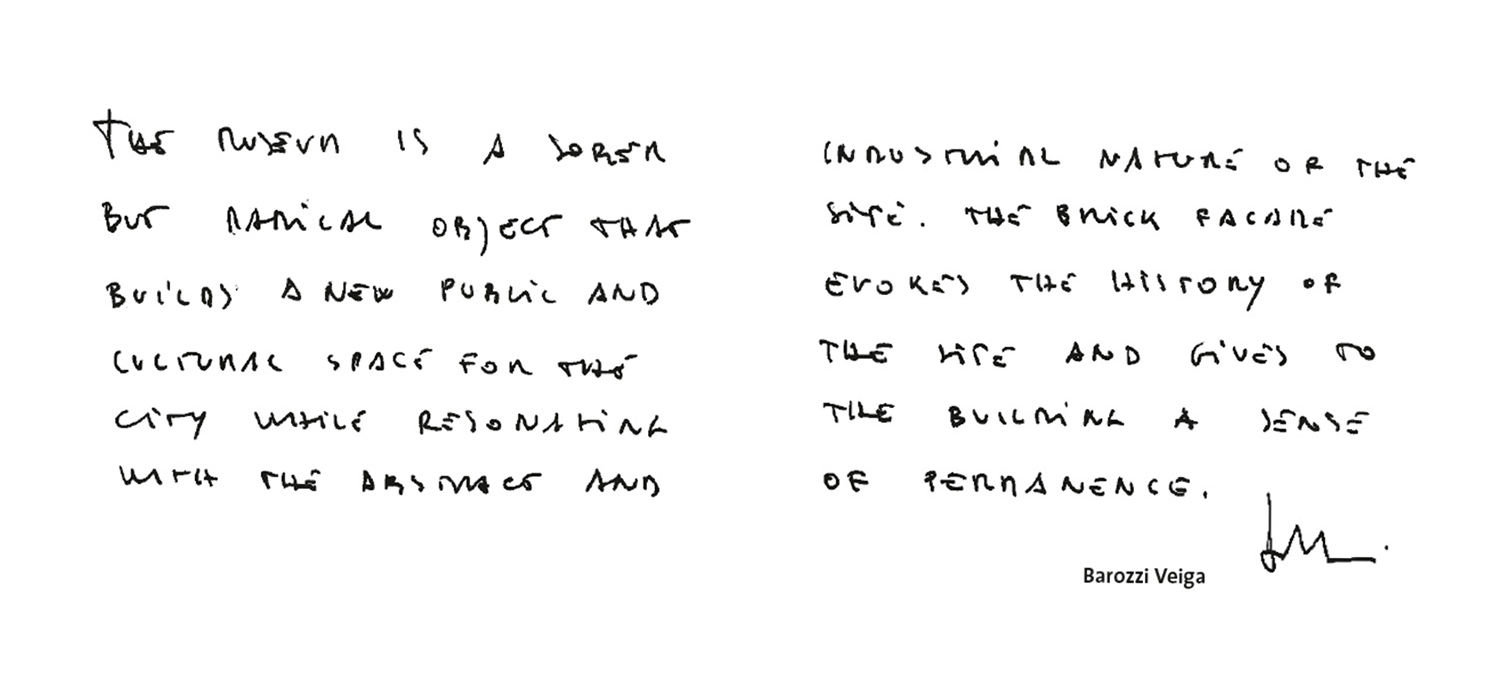 THE MUSEUM IS A SOBER
BUT RADICAL OBJECT THAT
BUILDS A NEW PUBLIC AND
CULTURAL SPACE FOR THE
CITY WHILE RESONATING
WITH THE ABSTRACT AND
INDUSTRIAL NATURE OF THE
SITE. THE BRICK FACADE
EVOKES THE HISTORY OF
THE SITE AND GIVES TO
THE BUILDING A SENSE
OF PERMANENCE.
Barozzi Veiga